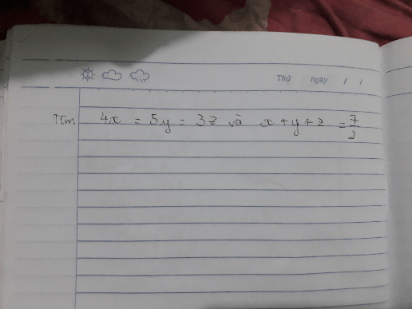 Thứ ngày / /
Tìm 4x = 5y = 3z và x + y + z = 7/2